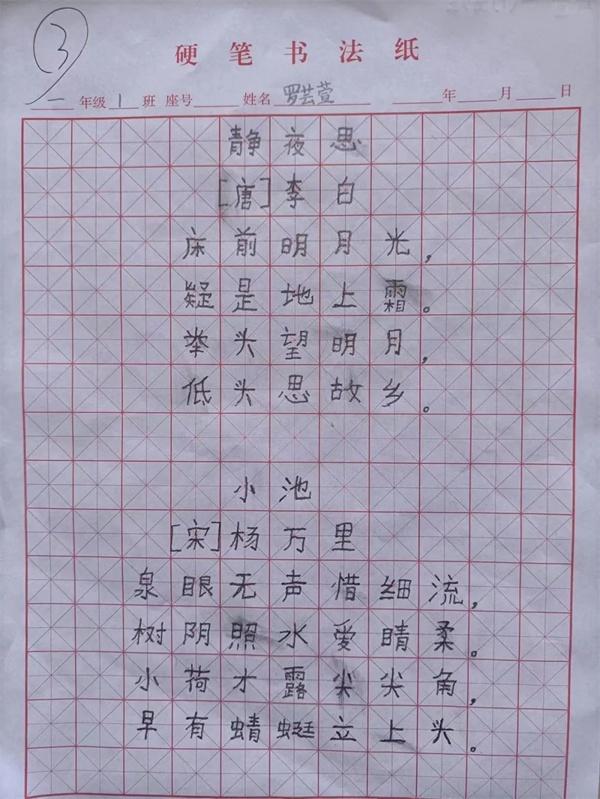 ③
硬笔书法纸
一年级1班 座号 姓名罗芸萱 年 月 日
静夜思
[唐]李白
床前明月光，
疑是地上霜。
举头望明月，
低头思故乡。
小池
[宋]杨万里
泉眼无声惜细流，
树阴照水爱晴柔。
小荷才露尖尖角，
早有蜻蜓立上头。